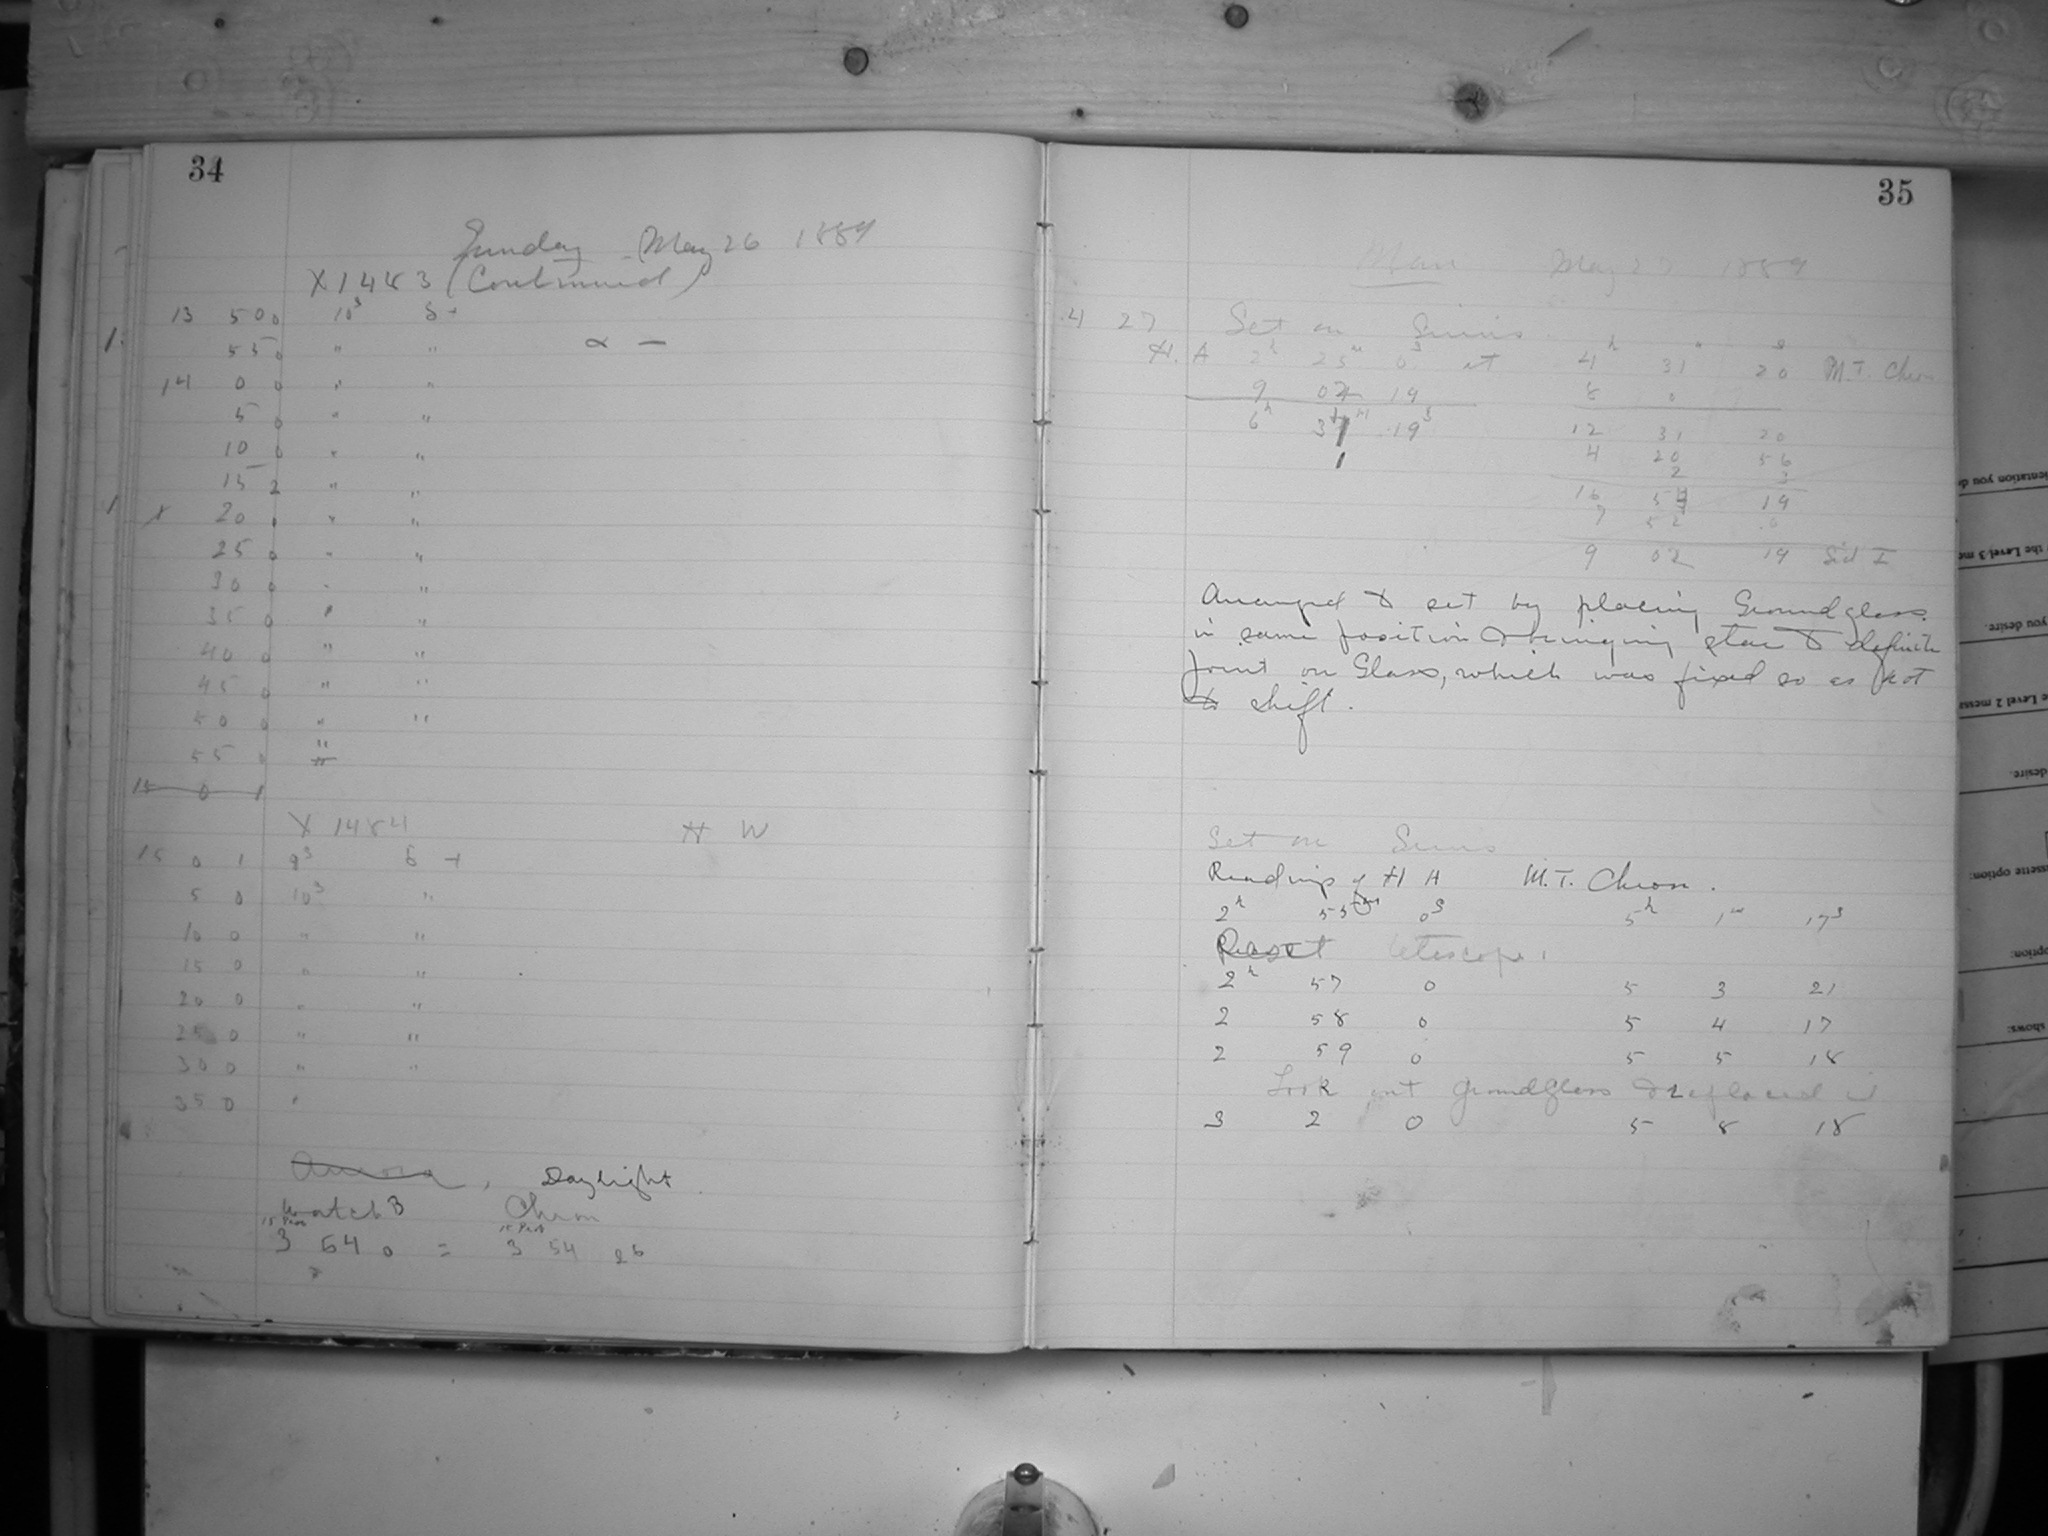 34
Sunday May 26 1889
X1483 (Continued)
13 50 0 10³ δ+
55 0 " " α —
14 0 0 " "
5 0 " "
10 0 " "
15 2 " "
X 20 0 " "
25 0 " "
30 0 " "
35 0 " "
40 0 " "
45 0 " "
50 0 " "
55 0 "
15 0 1
X 1484 H W
15 0 1 9³ δ +
5 0 10³ "
10 0 " "
15 0 " "
20 0 " "
25 0 " "
30 0 " "
35 0 "
Aurora, Daylight
Watch 3 Chron
3 54 0 = 3 54 26
35
May 27 1889
4 27 Set on Sirius
H. A 2h 25m 0s at 4h 31m 20s M.T. Chron
9 02 19 8 0
6h 3 m 19s 12 31 20
4 20 56
2 3
16 54 19
7 52 0
9 02 19 Sid T
Arranged to set by placing Groundglass
in same position & bringing star to definite
point on Glass, which was fixed so as not
to shift.
Set on Sirius
Readings of H A M.T. Chron.
2h 55m 0s 5h 1m 17s
Reset telescope.
2h 57 0 5 3 21
2 58 0 5 4 17
2 59 0 5 5 18
Took out groundglass & replaced it
3 2 0 5 8 18